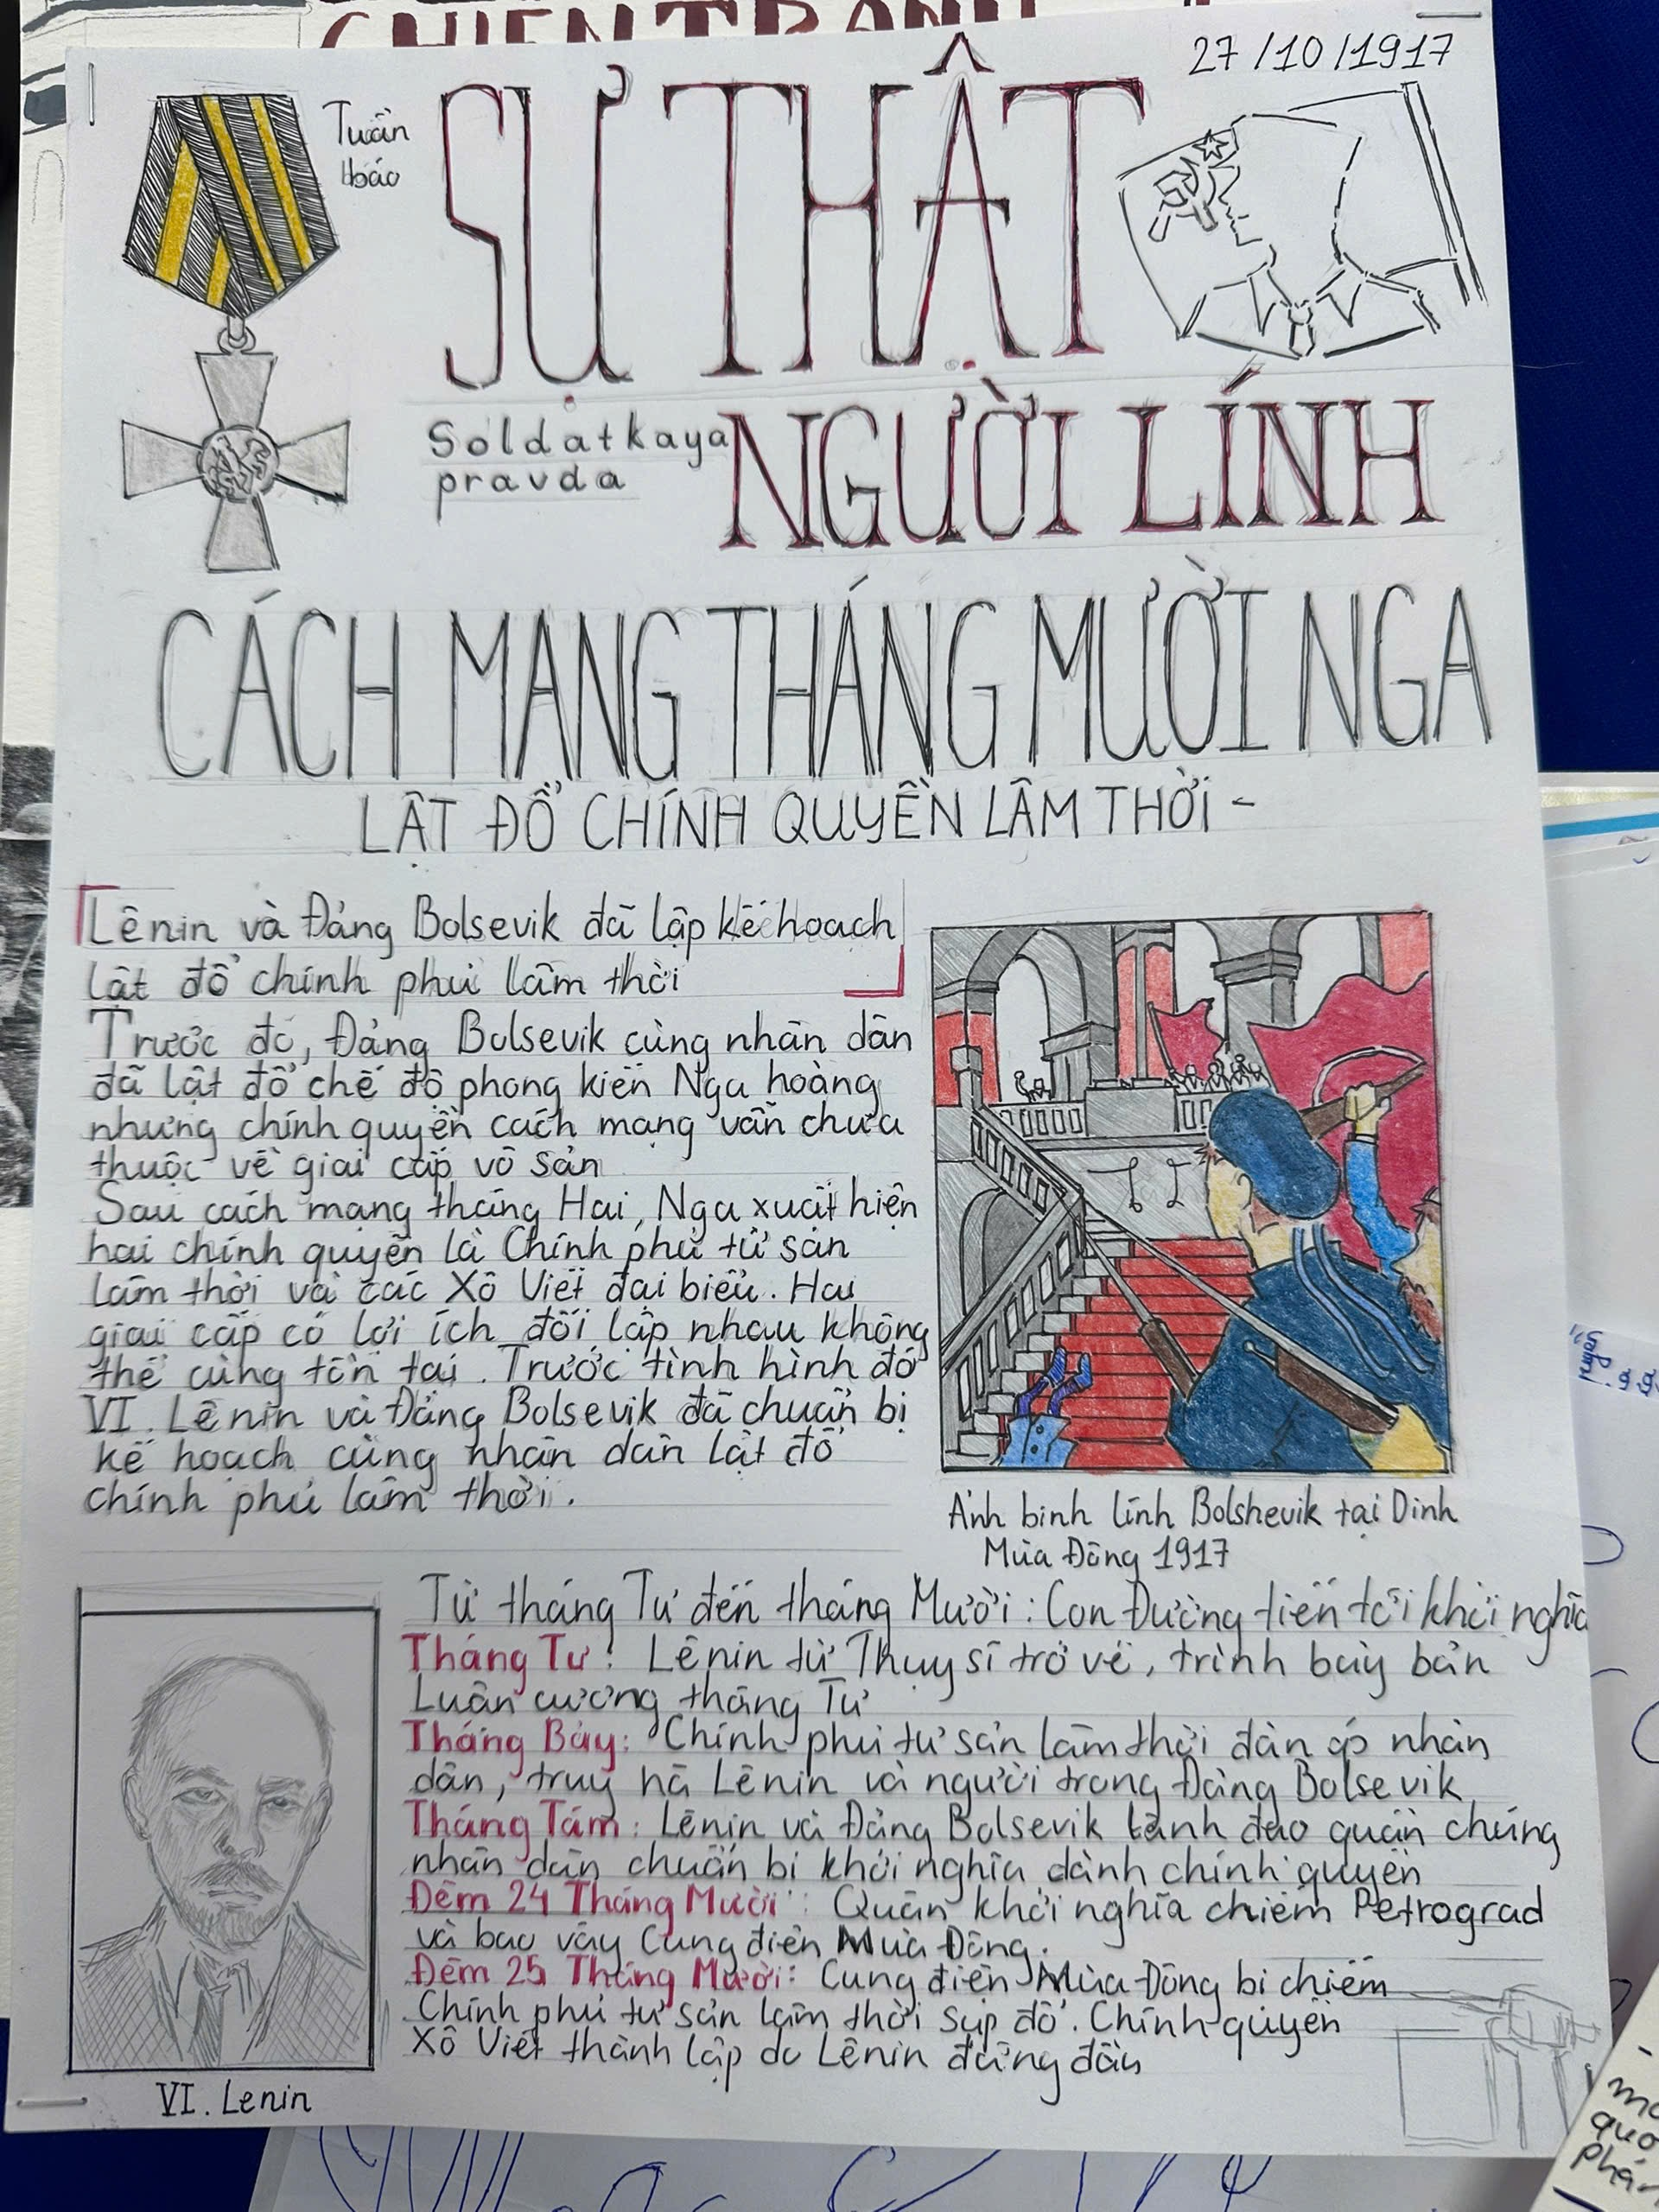 27/10/1917
Tuần
báo
SỰ THẬT
Soldatkaya
pravda
NGƯỜI LÍNH
CÁCH MANG THÁNG MƯỜI NGA
LẬT ĐỔ CHÍNH QUYỀN LÂM THỜI -
Lênin và Đảng Bolsevik đã lập kế hoạch
lật đổ chính phủ lâm thời
Trước đó, Đảng Bolsevik cùng nhân dân
đã lật đổ chế độ phong kiến Nga hoàng
nhưng chính quyền cách mạng vẫn chưa
thuộc về giai cấp vô sản
Sau cách mạng tháng Hai, Nga xuất hiện
hai chính quyền là Chính phủ tư sản
lâm thời và các Xô Viết đại biểu. Hai
giai cấp có lợi ích đối lập nhau không
thể cùng tồn tại. Trước tình hình đó
VI. Lênin và Đảng Bolsevik đã chuẩn bị
kế hoạch cùng nhân dân lật đổ
chính phủ lâm thời.
Ảnh binh lính Bolshevik tại Dinh
Mùa Đông 1917
Từ tháng Tư đến tháng Mười: Con Đường tiến tới khởi nghĩa
Tháng Tư: Lênin từ Thụy sĩ trở về, trình bày bản
Luận cương tháng Tư
Tháng Bảy: Chính phủ tư sản lâm thời đàn áp nhân
dân, truy nã Lênin và người trong Đảng Bolsevik
Tháng Tám: Lênin và Đảng Bolsevik lãnh đạo quần chúng
nhân dân chuẩn bị khởi nghĩa dành chính quyền
Đêm 24 Tháng Mười: Quân khởi nghĩa chiếm Petrograd
và bao vây Cung điện Mùa Đông.
Đêm 25 Tháng Mười: Cung điện Mùa Đông bị chiếm
Chính phủ tư sản lâm thời sụp đổ. Chính quyền
Xô Viết thành lập do Lênin đứng đầu
VI. Lenin